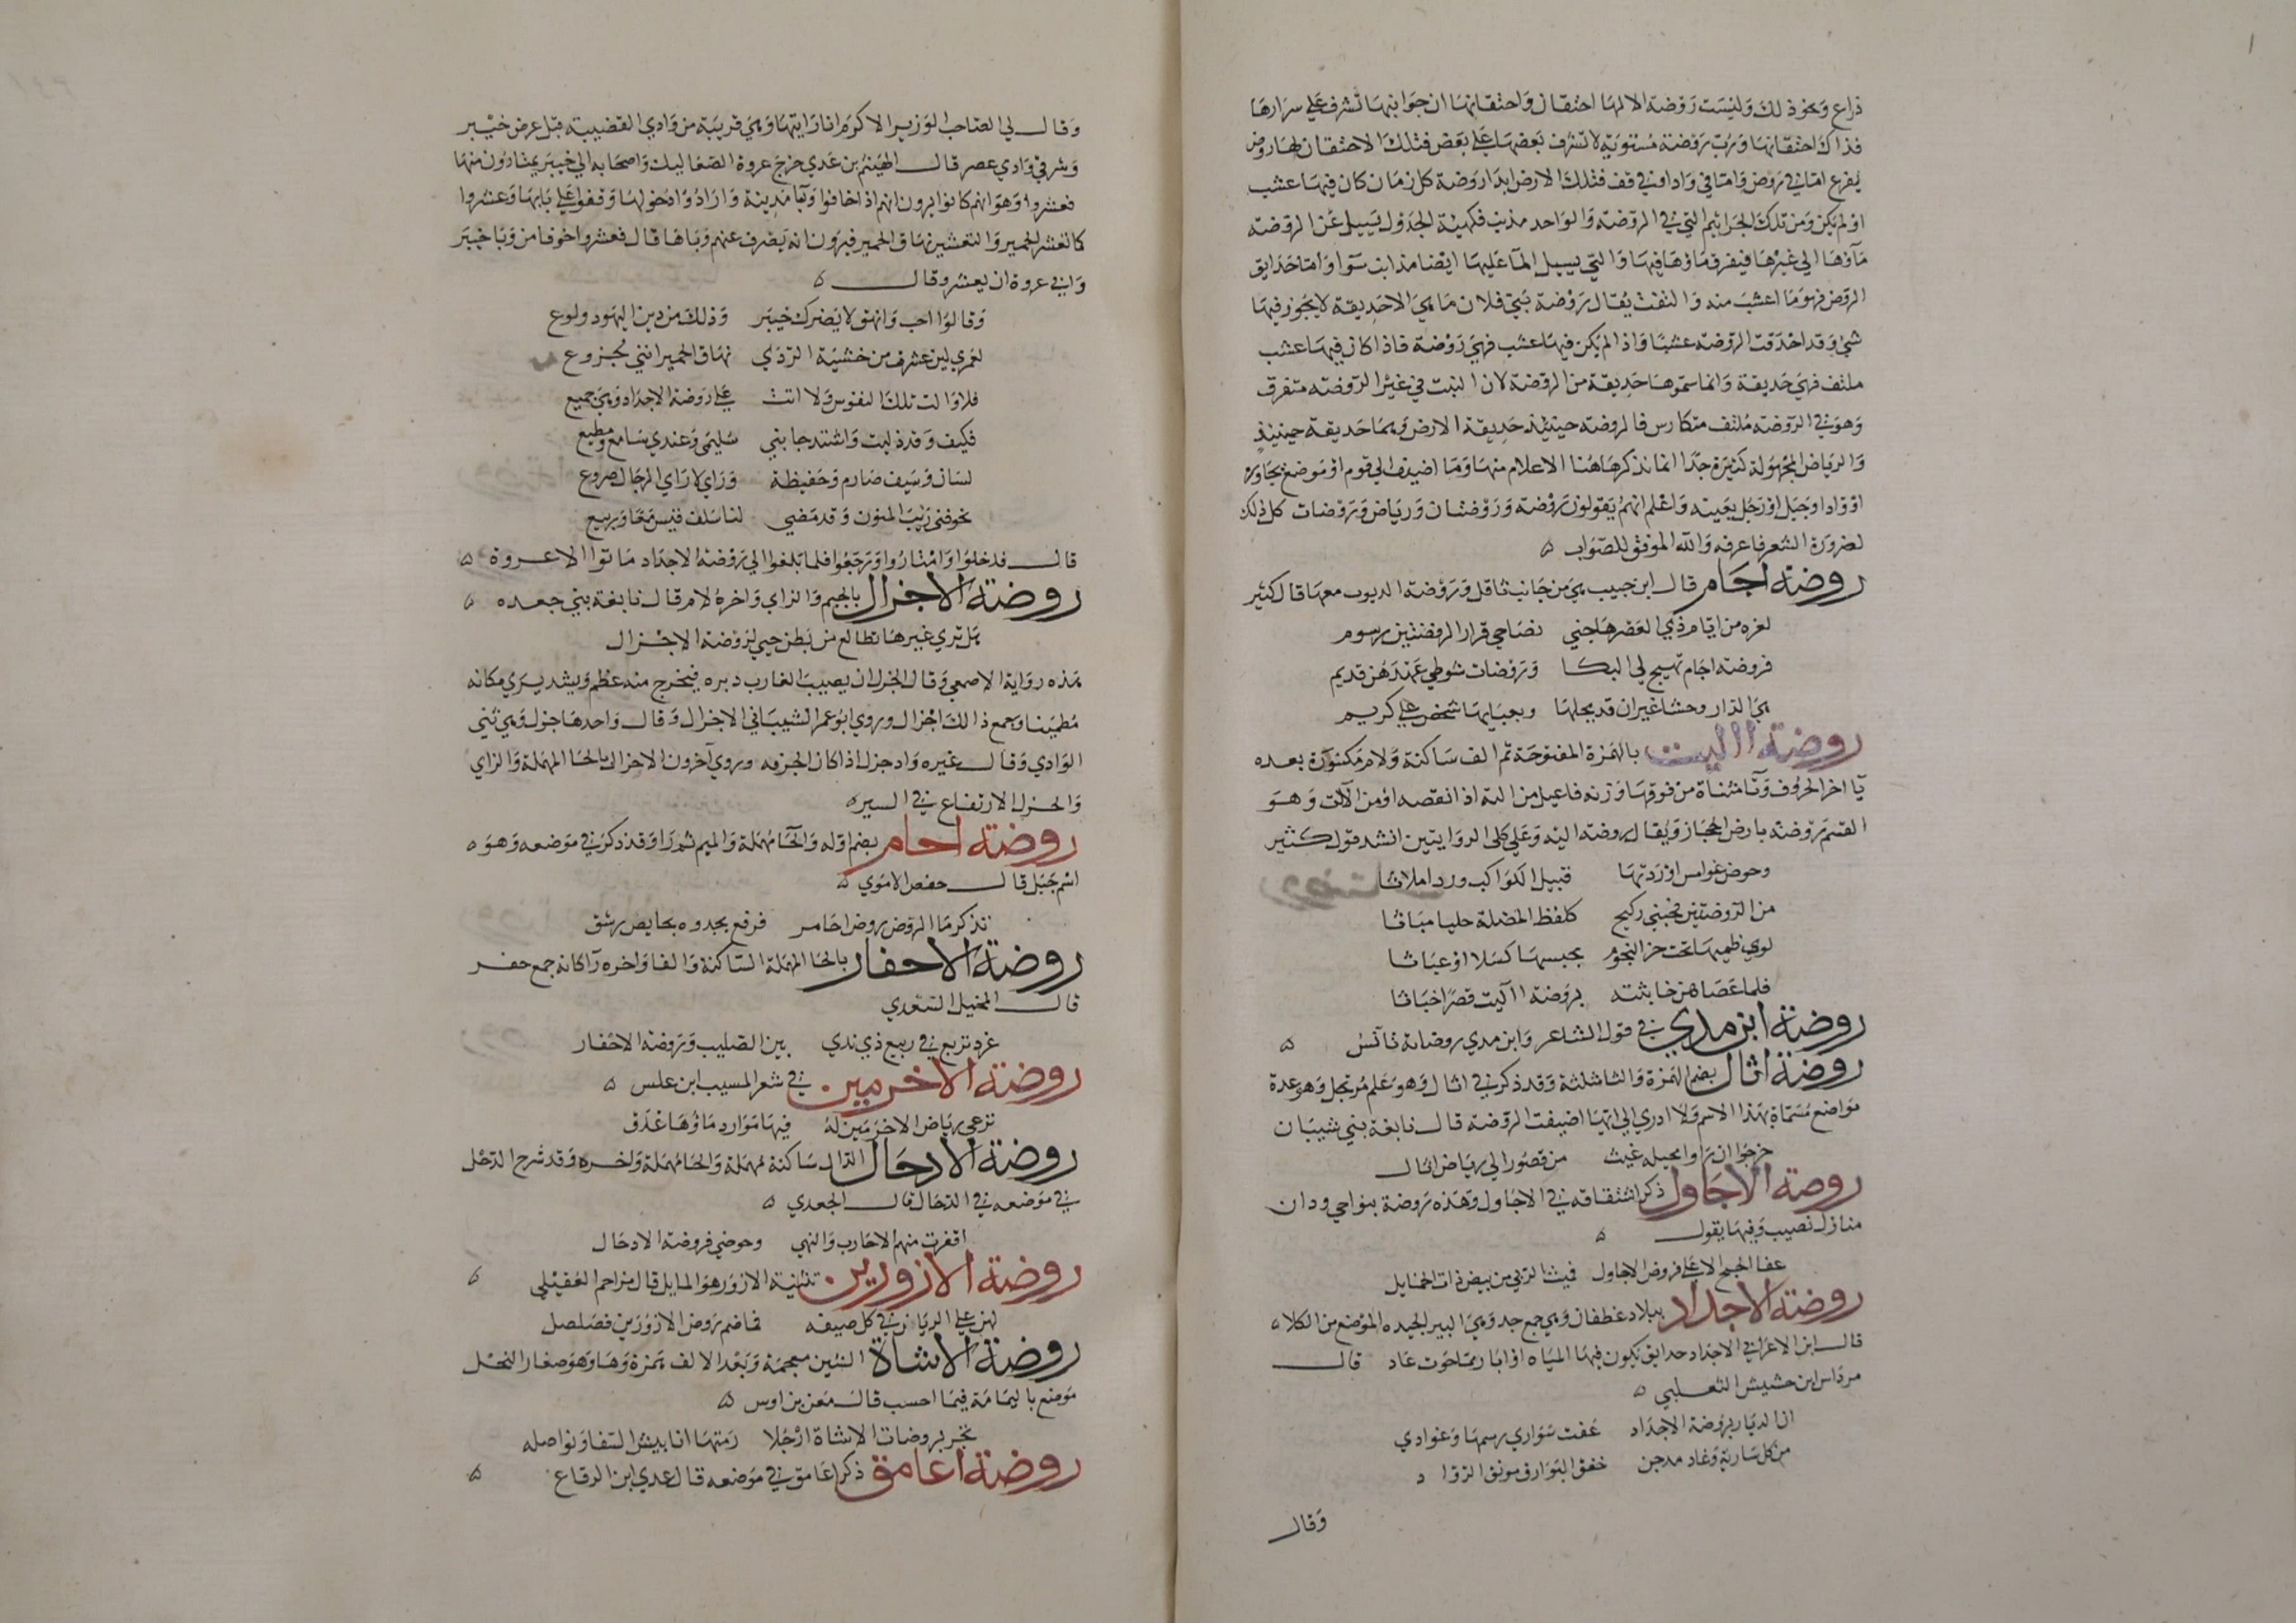 ذراع ونحو ذلك وليست روضة الا لها احتقان واحتقانها ان جوانبها تشرف على سرارها
فذاك احتقانها ورب روضة مستوية لا تشرف بعضها على بعض فتلك لا احتقان لها روض
يفرغ اما في روض واما في واد او في قف فتلك الارض ابدا روضة كل زمان كان فيها عشب
او لم يكن ومن تلك الجراثيم التي في الروضة والواحد مذنب فكهيئة الجدول يسيل عن الروضة
مآؤها الي غيرها فيتفرق ماؤها فيها والتي يسيل المآ عليها ايضا مذانب سوا واما حدايق
الروض فهو ما اعشب منه والتفت يقال روضة بني فلان ما هي الا حديقة لا يجوز فيها
شي وقد احدقت الروضة عشبا واذا لم يكن فيها عشب فهي روضة فاذا كان فيها عشب
ملتف فهي حديقة وانما سموها حديقة من الروضة لان النبت في غير الروضة متفرق
وهو في الروضة ملتف متكاوس فالروضة حينئذ حديقة الارض وهما حديقة حينيذ
والرياض المجهولة كثيرة جدا انما نذكر هاهنا الاعلام منها وما اضيف الي قوم او موضع تجاوره
او واد او جبل او رجل بعينه واعلم انهم يقولون روضة وروضتان ورياض وروضات كل ذلك
لضرورة الشعر فاعرفه والله الموفق للصواب ه
روضة احامر قال ابن حبيب هي من جانب ثافل وروضة الدبوب معها قال كثير
لعزه من ايام ذي الغضر هاجني نضاحي قرار الروضتين رسوم
فروضة اجام تهيج لي البكا وروضات شوطي عهدهن قديم
هي الدار وحشا غير ان قد يحلها ويعبابها شخص علي كريم
روضة االيت بالهمزة المفتوحة ثم الف ساكنة ولام مكسورة بعده
يآ اخر الحروف وتآ مثناة من فوقها وزنه فاعيل من الته اذا نقصه او من الآلت وهو
القسم روضة بارض الحجاز ويقال روضة اليه وعلي كلي الروايتين انشد قول كثير
وحوض غوامس اوردتها قبيل الكواكب ورد املاثا
من الروضتين فجنبي ركيح كلفظ المضلة حليا مباثا
لوي ظمها تحت حز النجوم يحبسها كسلا او عباثا
فلما عصاهن خابثته بروضة االيت قصرا خباثا
روضة ابن مدي في قول الشاعر وابن مدي روضاته تآنس ه
روضة اثال بضم الهمزة والثا مثلثة وقد ذكر في اثال وهو علم مرتجل وهو عدة
مواضع مسماة بهذا الاسم ولا ادري الي ايها اضيفت الروضة قال نابغة بني شيبان
خرجوا ان راوا مخيله غيث من قصور الي رياض اثال
روضة الاجاول ذكر اشتقاقه في الاجاول وهذه روضة بنواحي ودان
منازل نصيب وفيها يقول ه
عفا الحبج الاعلي فروض الاجاول فميث الربي من بيض ذات الخمايل
روضة الاجداد ببلاد غطفان وهي جمع جد وهي البير الجيده الموضع من الكلاه
قال ابن الاعرابي الاجداد حدايق تكون فيها المياه او ابار مما حوت عاد قال
مرداس ابن حشيش التغلبي ه
ان الديار بروضة الاجداد عفت سواري رسمها وغوادي
من كل سارية وغاد مدجن خفق البوارق مونق الرواد
وقال
وقال لي الصاحب الوزير الاكرم انا رايتها وهي قريبة من وادي القصيبة قبل عرض خيبر
وشرقي وادي عصر قال الهيثم بن عدي خرج عروة الصعاليك واصحابه الي خيبر يمتارون منها
فعشروا وهو انهم كانوا يرون انهم اذا خافوا وبآ مدينة وارادوا دخولها وقفوا علي بابها وعشروا
كما تعشر الحمير والتعشير نهاق الحمير فيرون انه يصرف عنهم وباها قال فعشروا خوفا من وبا خيبر
وابي عروة ان يعشر وقال ه
وقالوا احب وانهق لا يضرك خيبر وذلك من دين اليهود ولوع
لعمري لين عشرت من خشية الردي نهاق الحمير انني لجزوع
فلا والت تلك النفوس ولا اتت علي روضة الاجداد وهي جميع
فكيف وقد ذكيت واشتد جانبي سليمى وعندي سامع ومطيع
لسان وسيف صارم وحفيظة وراي لاراي الرجال صروع
تخوفني ريب المنون وقد مضي لنا سلف قيس معا وربيع
قال فدخلوا وامتاروا ورجعوا فلما بلغوا الي روضة الاجداد ماتوا الا عروة ه
روضة الاجزال بالجيم والزاي واخره لام قال نابغة بني جعده ه
هل تري غيرها تطالع من بطن حبي لروضة الاجزال
هذه رواية الاصمعي وقال الجزل ان يصيب الغارب دبره فيخرج منه عظم ويشد يري مكانه
مطمينا وجمع ذالك اجزال وروي ابو عمر الشيباني الاجزال وقال واحدها جزل وهي ثني
الوادي وقال غيره واد جزل اذا كان الجزفه وروي آخرون الاحزال بالحا المهملة والزاي
والحزل الارتفاع في السيره
روضة احامر بضم اوله والحآ مهملة والميم ثم را وقد ذكر في موضعه وهو ه
اسم جبل قال حفص الاموي ه
تذكر ما الروض روض احامر فرقع يجدوه بحايص رشق
روضة الاحفار بالحا المهملة الساكنة والفا واخره رآ كانه جمع حفر
قال المخبل السعدي
غرد تربع في ربيع ذي ندي بين الصليب وروضة الاحفار
روضة الاخرمين في شعر المسيب ابن علس ه
ترعي رياض الاخرمين له فيها موارد ماؤها غدق
روضة الادحال الدال ساكنة مهملة والحا مهملة واخره وقد شرح الدحل
في موضعه في الدحال قال الجعدي ه
اقفرت منهم الاحارب والنهي وحوضي فروضة الادحال
روضة الازورين تثنية الازور وهو المايل قال مزاحم العقيلي ه
لهن علي الريان في كل صيفه فماضم روض الازورين فصلصل
روضة الاشاة الشين معجمة وبعد الالف همزة وها وهو صغار النخل
موضع باليمامة فيما احسب قال معن بن اوس ه
تجر بروضات الاشاة ارجلا رمتها انابيش السفا ونواصله
روضة اعامق ذكر اعامق في موضعه قال عدي ابن الرقاع ه